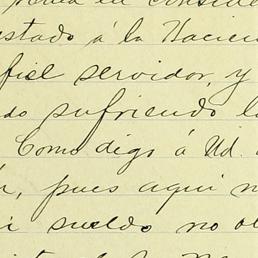 en conside
estado á la Hacien
fiel servidor, y
do sufriendo l
Como digo á Ud.
pues aqui n
i sueldo no o